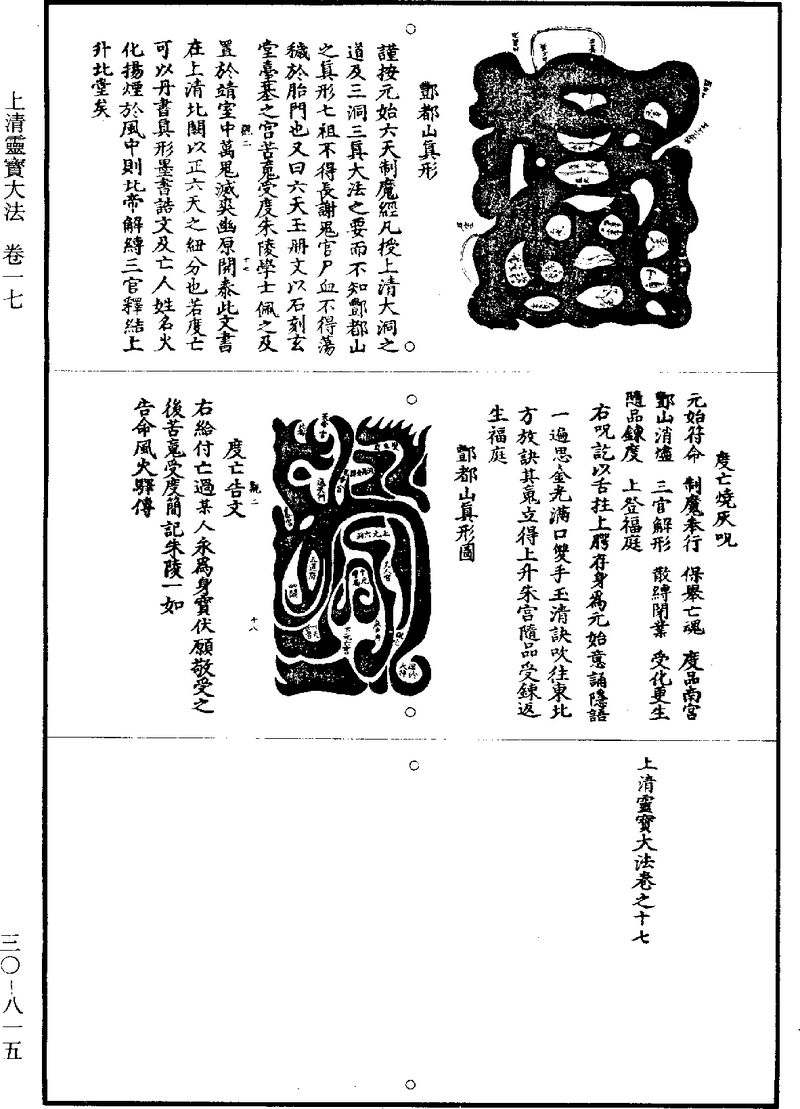 上清靈寶大法　卷一七
三〇—八一五
酆都山真形
謹按元始六天制魔經凡授上清大洞之
道及三洞三真大法之要而不知酆都山
之真形七祖不得長謝鬼官尸血不得蕩
穢於胎門也又曰六天玉冊文以石刻玄
堂臺墓之宮苦䰟受度朱陵學士佩之及
置於靖室中萬鬼滅爽幽原開泰此文書
在上清北闕以正六天之紐分也若度亡
可以丹書真形墨書誥文及亡人姓名火
化揚煙於風中則北帝解縛三官釋結上
升北堂矣
觀二
十七
度亡燒灰呪
元始符命　制魔奉行　保舉亡魂　度品南宮
酆山消爐　三官解形　散縛閉業　受化更生
隨品鍊度　上登福庭
右呪訖以舌拄上腭存身為元始意誦隱語
一遍思金光滿口雙手玉清訣吹往東北
方放訣其䰟立得上升朱宮隨品受鍊返
生福庭
酆都山真形圖
度亡告文
觀二
十八
右給付亡過某人永為身寶伏願敬受之
後苦䰟受度簡記朱陵一如
告命風火驛傳
上清靈寶大法卷之十七